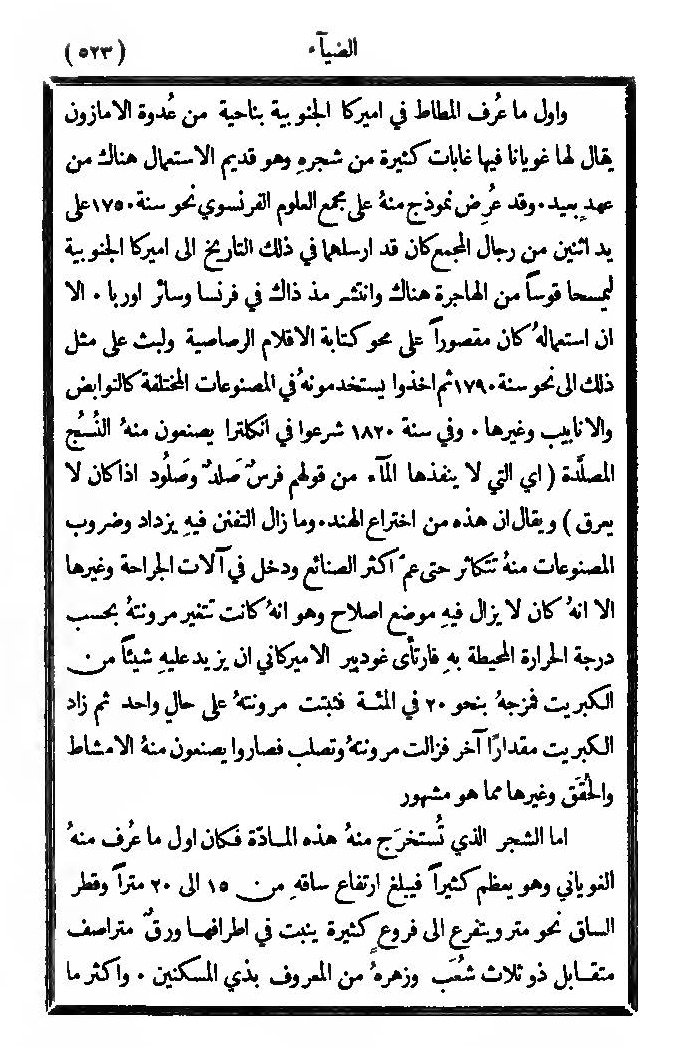 الضيآء
(٥٢٣)
واول ما عُرف المطاط في اميركا الجنوبية بناحية من عُدوة الامازون
يقال لها غويانا فيها غابات كثيرة من شجرهِ وهو قديم الاستعمال هناك من
عهدٍ بعيد. وقد عُرِض نموذج منهُ على مجمع العلوم الفرنسوي نحو سنة ١٧٥٠ على
يد اثنين من رجال المجمع كان قد ارسلهما في ذلك التاريخ الى اميركا الجنوبية
ليمسحا قوساً من الهاجرة هناك وانتشر مذ ذاك في فرنسا وسائر اوربا. الا
ان استعمالهُ كان مقصوراً على محو كتابة الاقلام الرصاصية ولبث على مثل
ذلك الى نحو سنة ١٧٩٠ ثم اخذوا يستخدمونهُ في المصنوعات المختلفة كالنوابض
والانابيب وغيرها. وفي سنة ١٨٢٠ شرعوا في انكلترا يصنعون منهُ النُسُج
المصلَّدة (اي التي لا ينفذها المآء من قولهم فرسٌ صَلدٌ وصَلُود اذا كان لا
يعرق) ويقال ان هذه من اختراع الهند. وما زال التفنن فيهِ يزداد وضروب
المصنوعات منهُ تتكاثر حتى عمّ اكثر الصنائع ودخل في آلات الجراحة وغيرها
الا انهُ كان لا يزال فيهِ موضع اصلاح وهو انهُ كانت تتغير مرونتهُ بحسب
درجة الحرارة المحيطة بهِ فارتأى غوديير الاميركاني ان يزيد عليهِ شيئاً من
الكبريت فمزجهُ بنحو ٢٠ في المئة فثبتت مرونتهُ على حالٍ واحد ثم زاد
الكبريت مقدارًا آخر فزالت مرونتهُ وتصلب فصاروا يصنعون منهُ الامشاط
والحُقَق وغيرها مما هو مشهور
اما الشجر الذي تُستخرَج منهُ هذه المادّة فكان اول ما عُرف منهُ
الغوياني وهو يعظم كثيراً فيبلغ ارتفاع ساقهِ من ١٥ الى ٢٠ متراً وقطر
الساق نحو متر ويتفرع الى فروعٍ كثيرة ينبت في اطرافها ورقٌ متراصف
متقابل ذو ثلاث شُعَب وزهرهُ من المعروف بذي المسكنين. واكثر ما